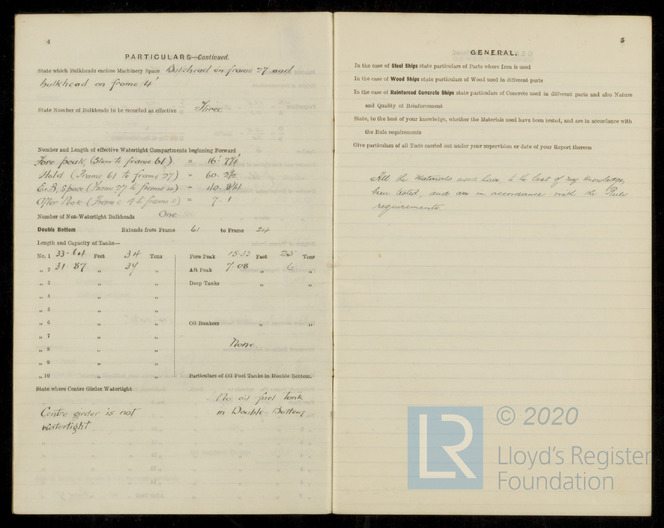 4
PARTICULARS—Continued.
State which Bulkheads enclose Machinery Space Bulkhead on frame 27 and
bulkhead on frame 4
State Number of Bulkheads to be recorded as effective Three
Number and Length of effective Watertight Compartments beginning Forward
Fore peak, (Stem to frame 61) = 16'
Hold (Frame 61 to frame 27) = 60.
E.B. Space (Frame 27 to frame 4) = 40.
After Peak (Frame 4 to frame 0) = 7. 1
Number of Non-Watertight Bulkheads One
Double Bottom Extends from Frame 61 to Frame 24
Length and Capacity of Tanks—
No. 1 33-64 Feet 34 Tons Fore Peak Feet Tons
„ 2 31.87 „ 34 „ Aft Peak 7.08 „ 6 „
„ 3 „ „ Deep Tanks „ „
„ 4 „ „
„ 5 „ „
„ 6 „ „ Oil Bunkers „ „
„ 7 „ „ None
„ 8 „ „
„ 9 „ „
„ 10 „ „ Particulars of Oil Fuel Tanks in Double Bottom.
State where Centre Girder Watertight
No oil fuel tank
in Double Bottom
Centre girder is not
watertight
5
GENERAL.
In the case of Steel Ships state particulars of Parts where Iron is used
In the case of Wood Ships state particulars of Wood used in different parts
In the case of Reinforced Concrete Ships state particulars of Concrete used in different parts and also Nature
and Quality of Reinforcement
State, to the best of your knowledge, whether the Materials used have been tested, and are in accordance with
the Rule requirements
Give particulars of all Tests carried out under your supervision or date of your Report thereon
All the materials used have, to the best of my knowledge,
been tested, and are in accordance with the Rule
requirements.
LR
© 2020
Lloyd's Register
Foundation